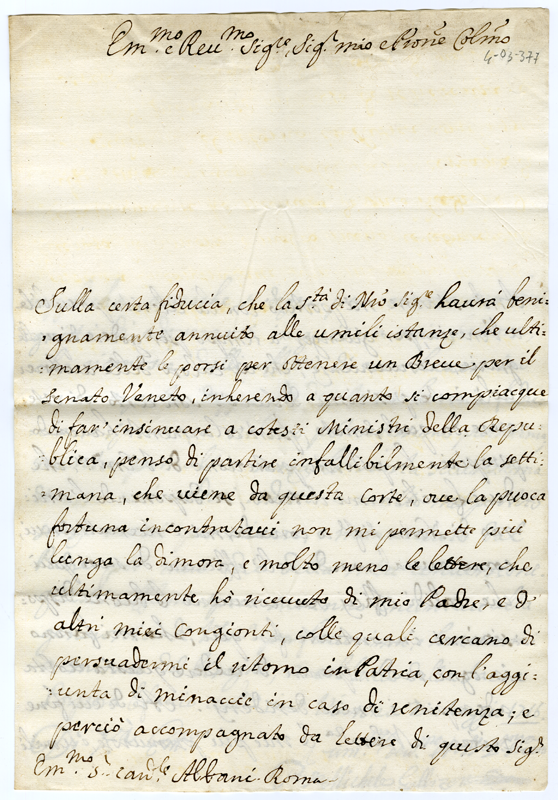 Em.mo e Reu.mo Sig.re, Sig.r mio e Pron̄e Colmo
4-03-377
Sulla certa fiducia, che la S.tà di Nr̄o Sig.re haurà beni:
:gnamente annuito alle umili istanze, che ulti:
:mamente le porsi per ottenere un Breue per il
Senato Veneto, inherendo a quanto si compiacque
di far' insinuare a cotesti Ministri della Repu:
:blica, penso di partire infallibilmente la setti:
:mana, che uiene da questa Corte, oue la puoca
fortuna incontrataui non mi permette più
lunga la dimora, e molto meno le lettere, che
ultimamente hò riceuuto di mio Padre, e d'
altri miei Congionti, colle quali cercano di
persuadermi il ritorno in Patria, con l'aggi:
:unta di minaccie in caso di renitenza; e
perciò accompagnato da lettere di questo Sig.r
Em.mo S.r Card.le Albani. Roma